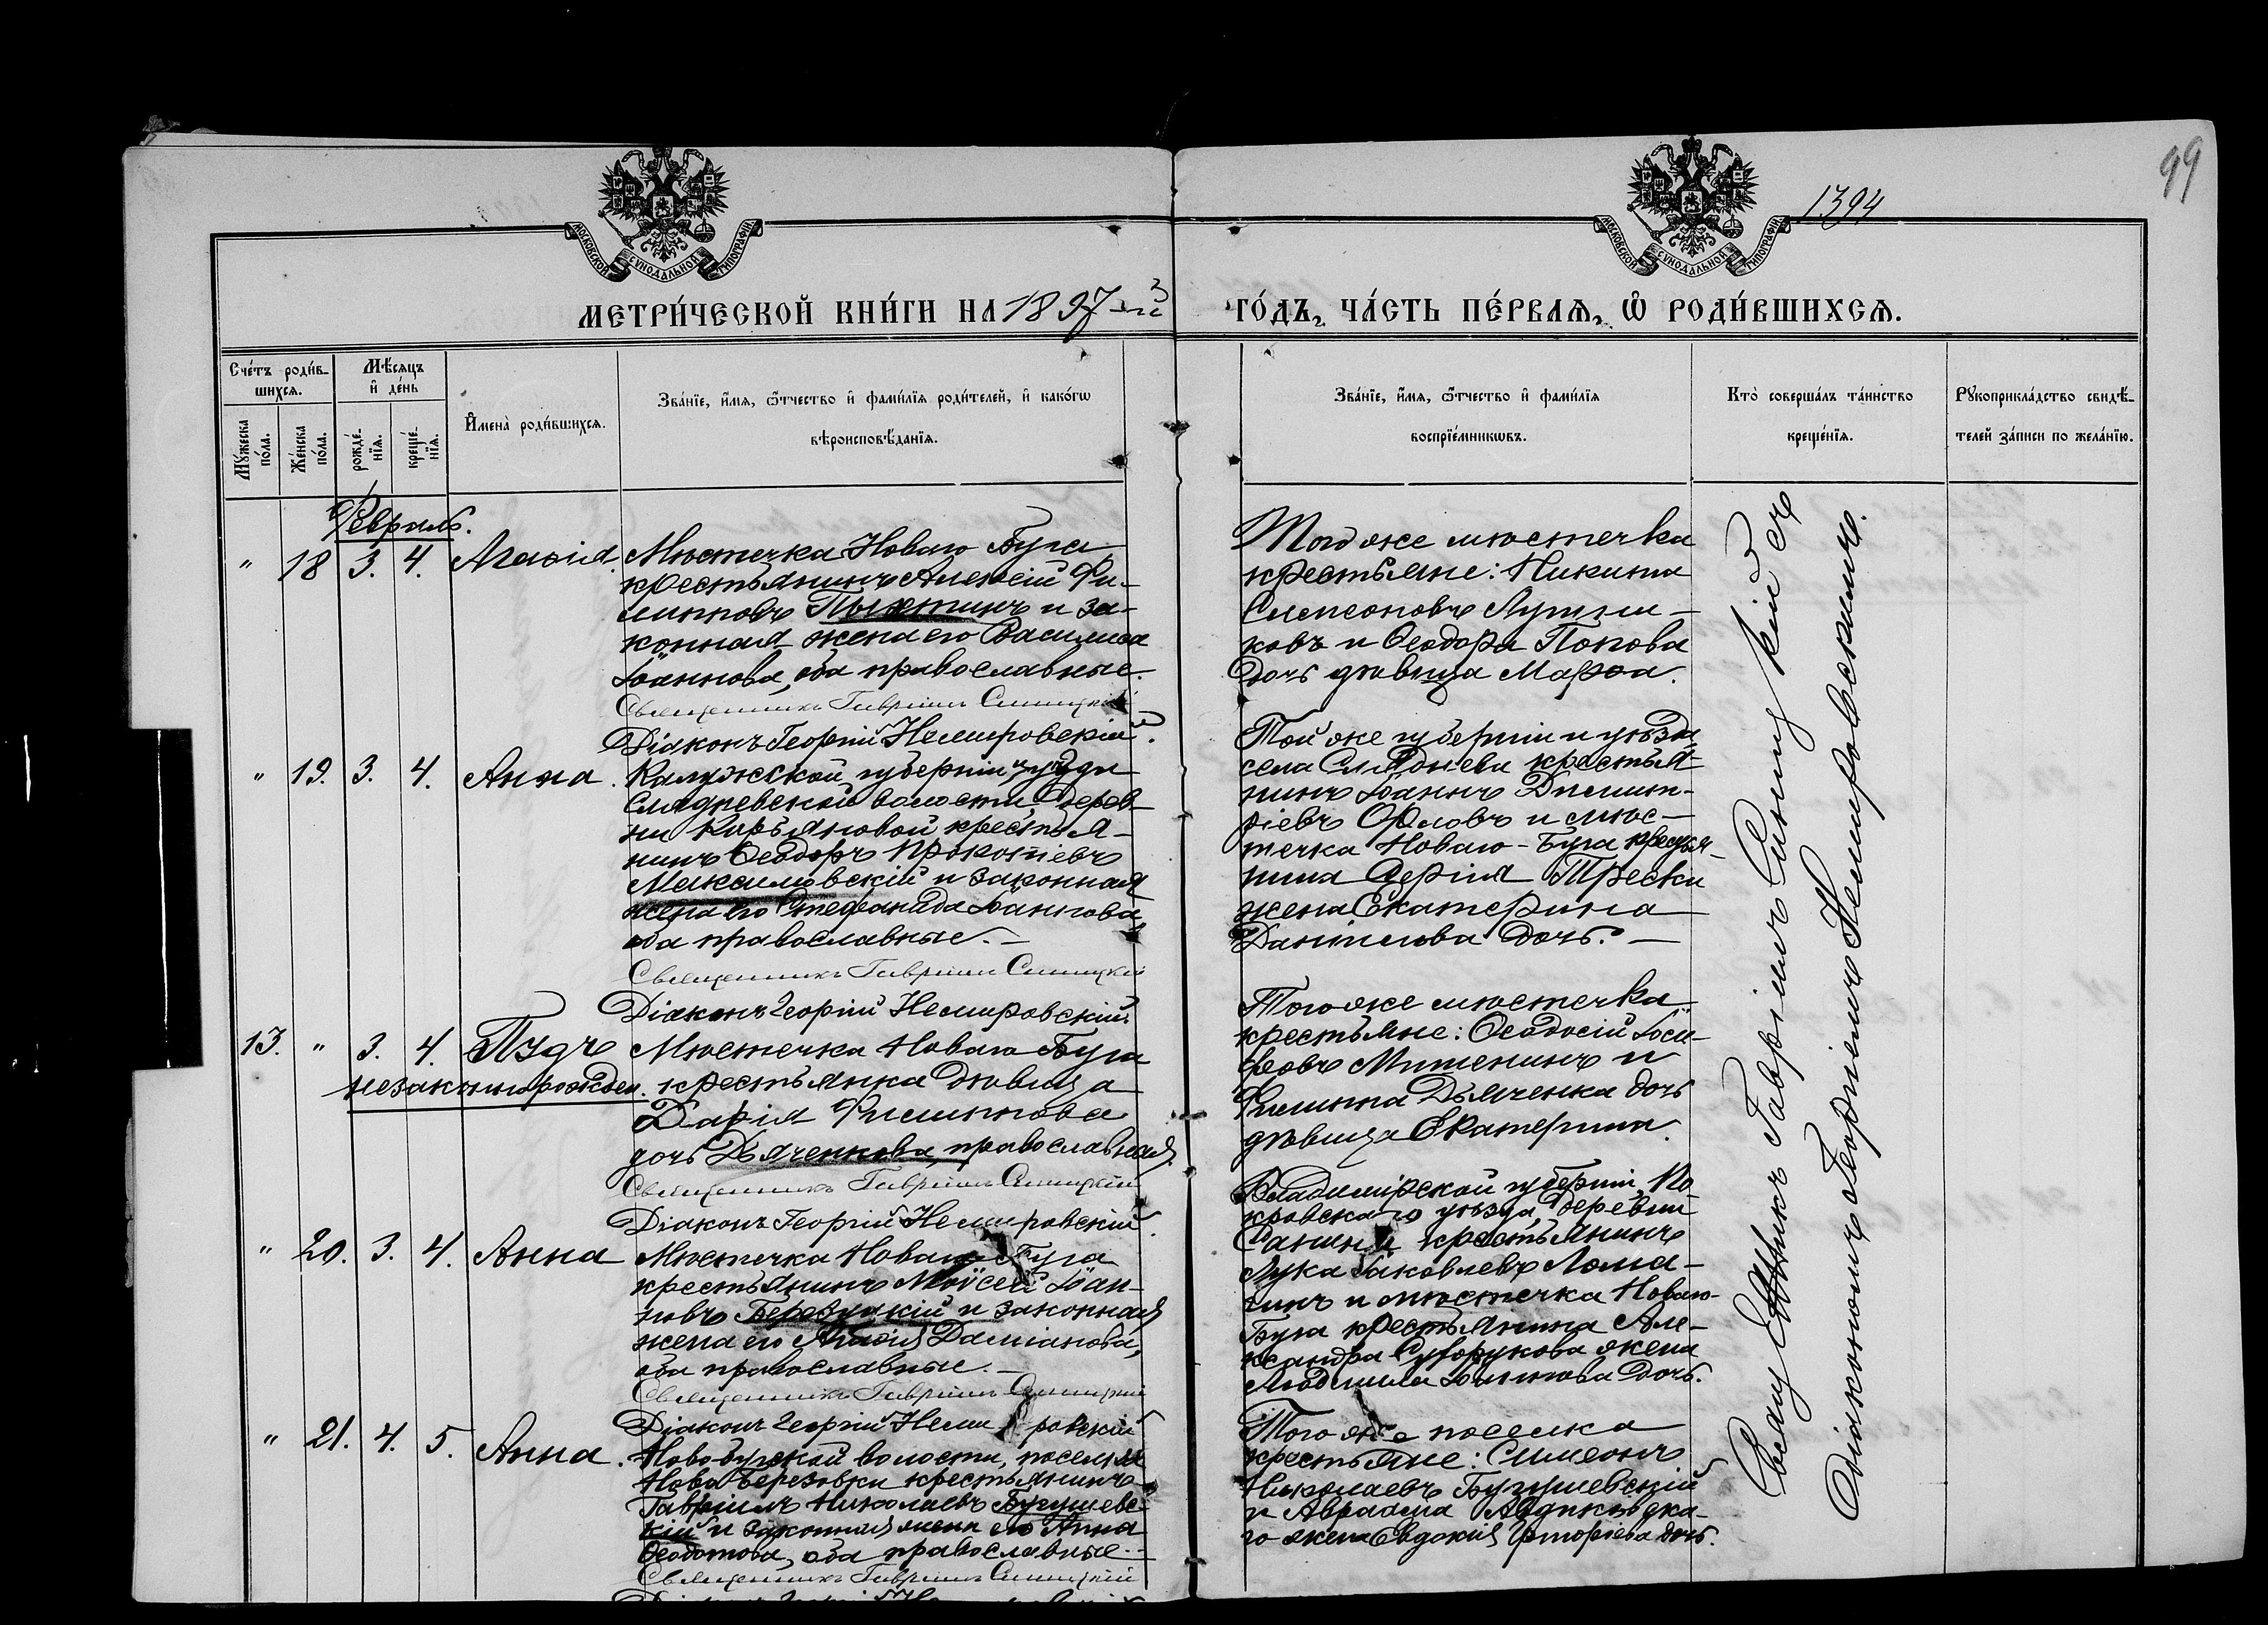 99
1394
МОСКОВСКОЙ СѴНОДАЛЬНОЙ ТИПОГРАФІИ
МОСКОВСКОЙ СѴНОДАЛЬНОЙ ТИПОГРАФІИ
МЕТРИ́ЧЕСКОЙ КНИ́ГИ НА 1897-й ГО́ДЪ, ЧА́СТЬ ПЕ́РВАѦ, Ѡ҆ РОДИ́ВШИХСѦ.
Сче́тъ роди́в-
шихсѧ.
Мꙋ́жеска по́ла.
Же́нска по́ла.
Мѣ́сѧцъ и҆ де́нь
рожде́-
нїѧ.
креще́-
нїѧ.
И҆мена̀ роди́вшихсѧ.
Зва́нїе, и҆́мѧ, ѻ҆́тчество и҆ фами́лїѧ роди́телей, и҆ како́гѡ
вѣроисповѣ́данїѧ.
Зва́нїе, и҆́мѧ, ѻ҆́тчество и҆ фами́лїѧ
воспрїе́мникѡвъ.
Кто̀ соверша́лъ та́инство
креще́нїѧ.
Рꙋкоприкла́дство свидѣ́-
телей за́писи по жела́нїю.
Февраль.
" 18 3. 4.
Мѣстечка Новаго Буга
крестьянинъ Алексій Фи-
липповъ Пыхтинъ и за-
конная жена его Василиса
Іоаннова, оба православные.
Священникъ Гавріилъ Синицкій
Діаконъ Георгій Немировскій.
Того же мѣстечка
крестьяне: Никита
Симеоновъ
ковъ и Ѳеодора Попова
дочь дѣвица Марѳа.
" 19. 3. 4. Анна.
Калужской губерніи и уѣзда
Слядневской волости дерев-
ни Карьяновой крестья-
нинъ Ѳеодоръ Прокопіевъ
Максимовскій и законная
жена его Стефанида Іоаннова
оба православные. —
Священникъ Гавріилъ Синицкій
Діаконъ Георгій Немировскій
Той же губерніи и уѣзда
села Сляднева крестья-
нинъ Іоаннъ Димит-
ріевъ Орловъ и мѣс-
течка Новаго-Буга крестья-
нина Сергія Трески
жена Екатерина
Даніилова дочь. —
13. " 3. 4. Пудъ
незаконнорожден.
Мѣстечка Новаго Буга
крестьянка дѣвица
Дарія Филиппова
дочь Дьяченкова, православная.
Священникъ Гавріилъ Синицкій
Діаконъ Георгій Немировскій.
Того же мѣстечка
крестьяне: Ѳеодосій Іоси-
фовъ Митенинъ и
Филиппа Дьяченка дочь
дѣвица Екатерина.
" 20. 3. 4. Анна
Мѣстечка Новаго Буга
крестьянинъ Моѵсей Іоан-
новъ и законная
жена его Агаѳія Даміанова,
оба православные. —
Священникъ Гавріилъ Синицкій
Діаконъ Георгій Немировскій
Владимірской губерніи По-
кровскаго уѣзда, деревни
Санина крестьянинъ
Лука Іаковлевъ
и мѣстечка Новаго-
Буга крестьянина Але-
ксандра Сухорукова жена
Людмила Іоаннова дочь.
" 21. 4. 5. Анна.
Ново-Бугской волости, поселка
Ново-Березовки крестьянинъ
Гавріилъ Николаевъ Бугушевс-
кій и законная жена его Анна
Ѳеодотова, оба православные. —
Священникъ Гавріилъ Синицкій
Того же поселка
крестьяне: Симеонъ
Николаевъ Бугушевскій
и Авраама
го жена Евдокія Григоріева дочь.
Священникъ Гавріилъ Синицкій съ
діакономъ Георгіемъ Немировскимъ.